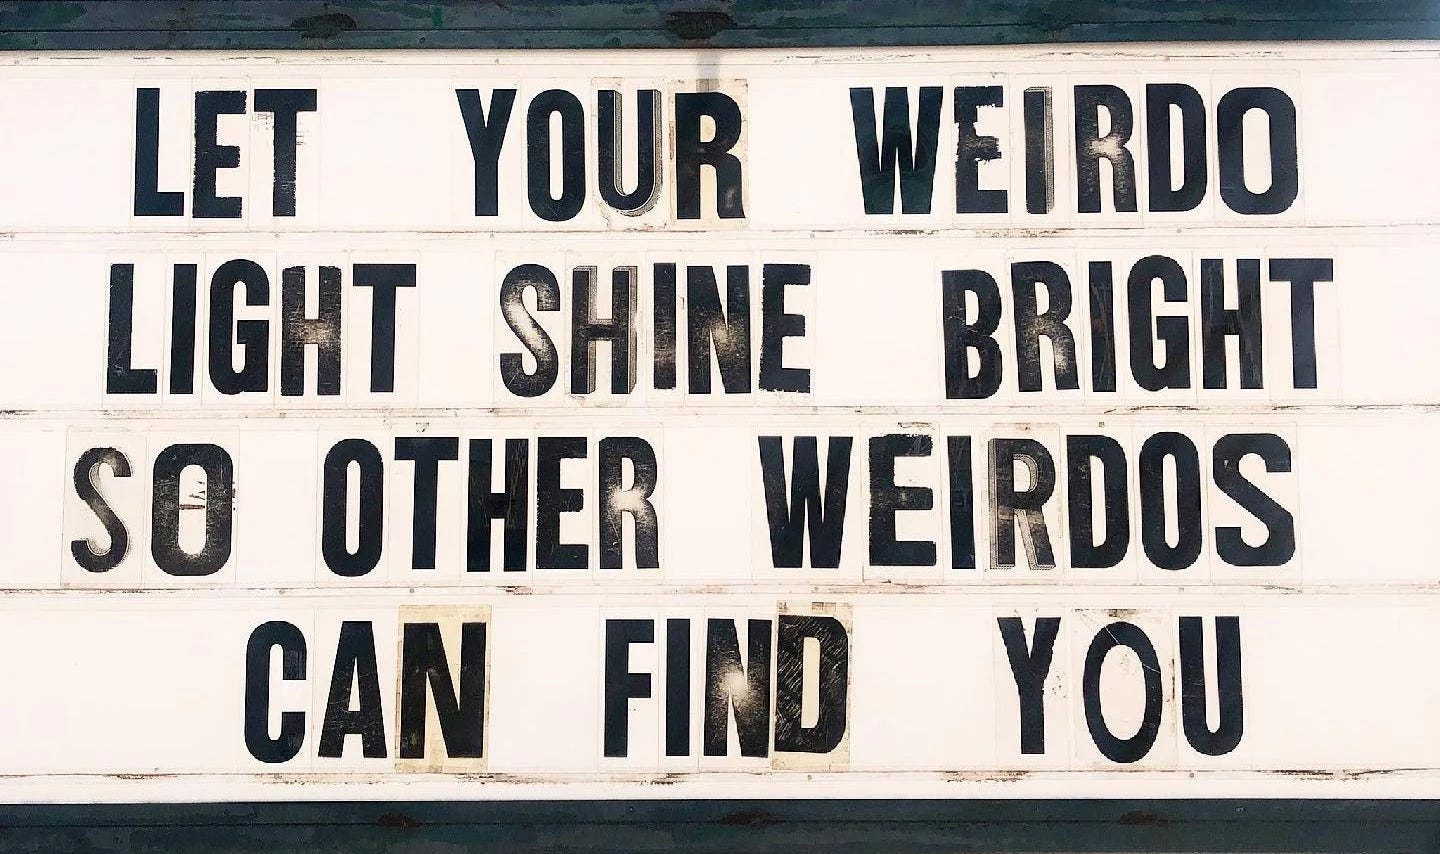 LET YOUR WEIRDO
LIGHT SHINE BRIGHT
SO OTHER WEIRDOS
CAN FIND YOU